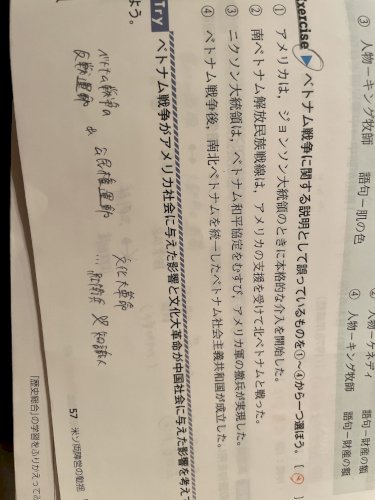 ③ 人物－キング牧師　語句－肌の色
④ 人物－ケネディ　語句－財産の額
④ 人物－キング牧師　語句－財産の額
Exercise ▶ベトナム戦争に関する説明として誤っているものを①～④から一つ選ぼう。〔②〕
① アメリカは，ジョンソン大統領のときに本格的な介入を開始した。
② 南ベトナム解放民族戦線は，アメリカの支援を受けて北ベトナムと戦った。
③ ニクソン大統領は，ベトナム和平協定をむすび，アメリカ軍の撤兵が実現した。
④ ベトナム戦争後，南北ベトナムを統一したベトナム社会主義共和国が成立した。
Try ベトナム戦争がアメリカ社会に与えた影響と文化大革命が中国社会に与えた影響を考え
よう。
ベトナム戦争の
反戦運動 & 公民権運動
文化大革命
… 紅衛兵 知識人
57 米ソ両陣営の動揺
「歴史総合」の学習をふりかえってみ